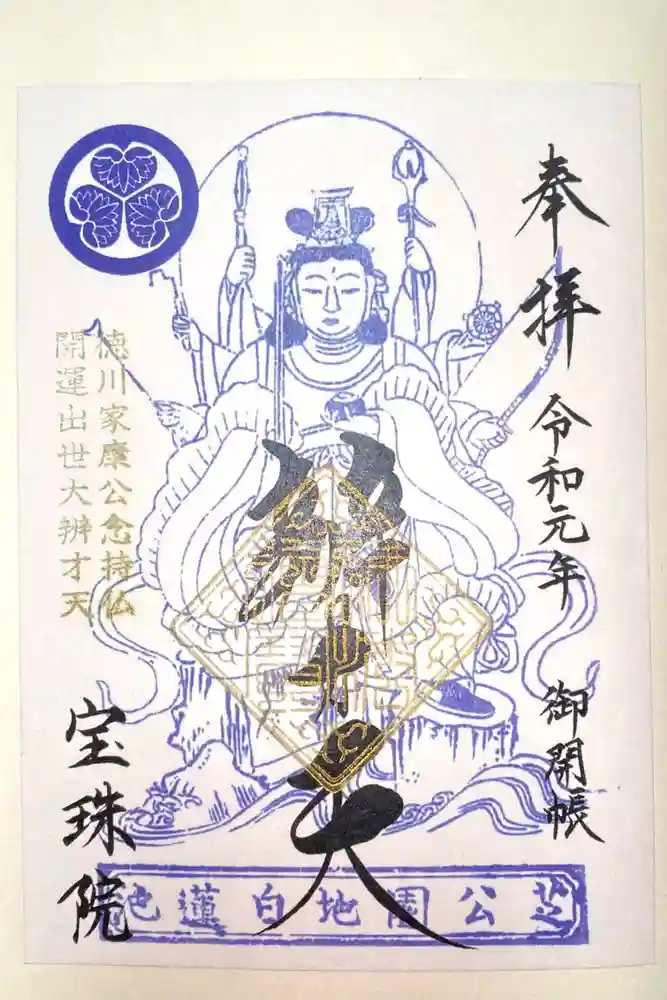 奉拝 令和元年
御開帳
辨才天
徳川家康公念持仏
開運出世大辨才天
宝珠院
芝公園地白蓮池